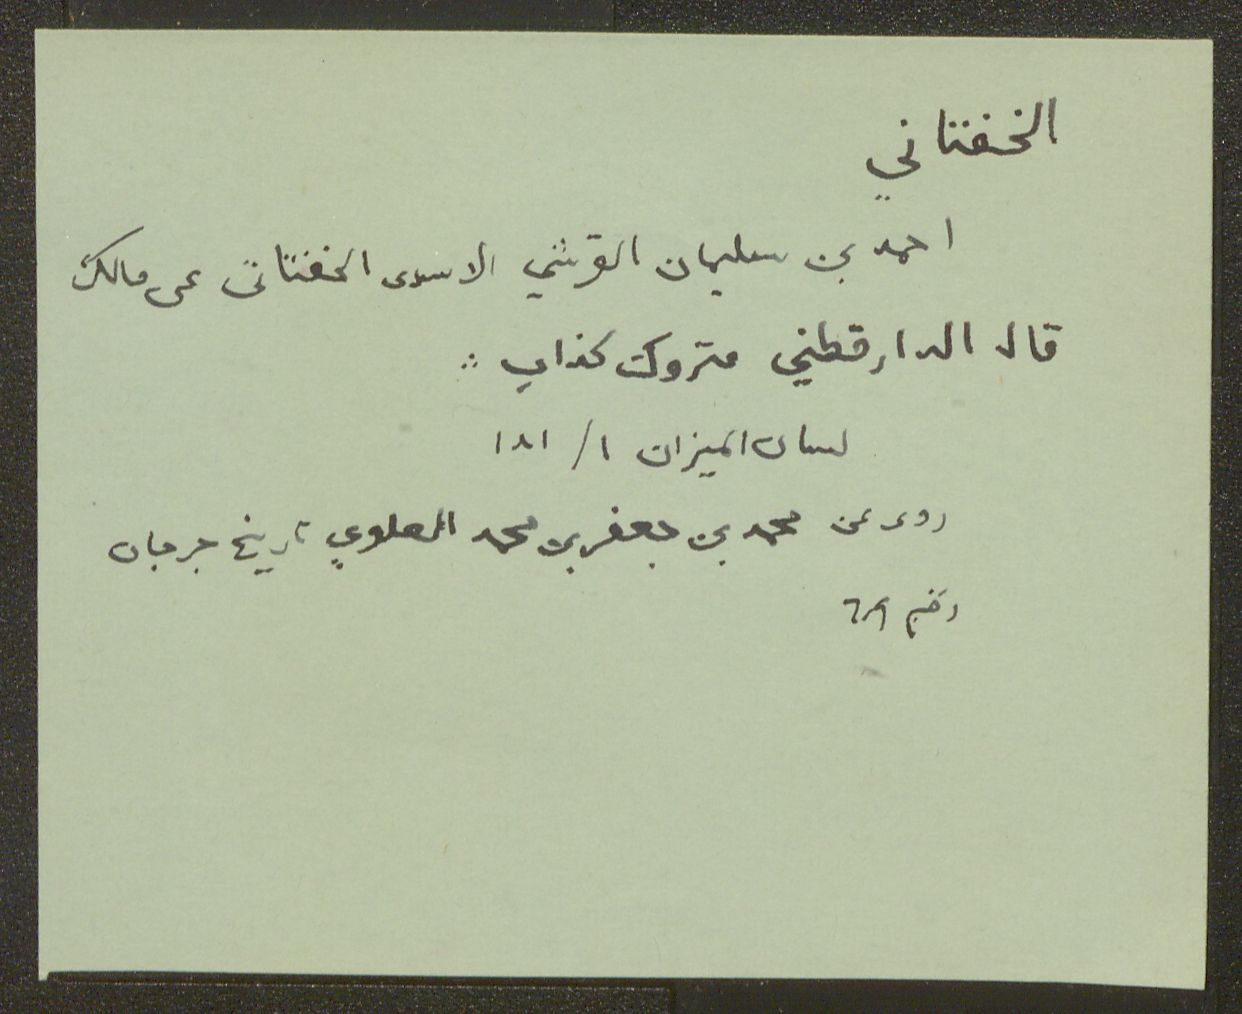 الخفتاني
احمد بن سليمان القرشي الاسدى الخفتانى عن مالك
قال الدارقطني متروك كذاب ∴
لسان الميزان ١/ ١٨١
روى عن محمد بن جعفر بن محمد العلوي تاريخ جرجان
رقم